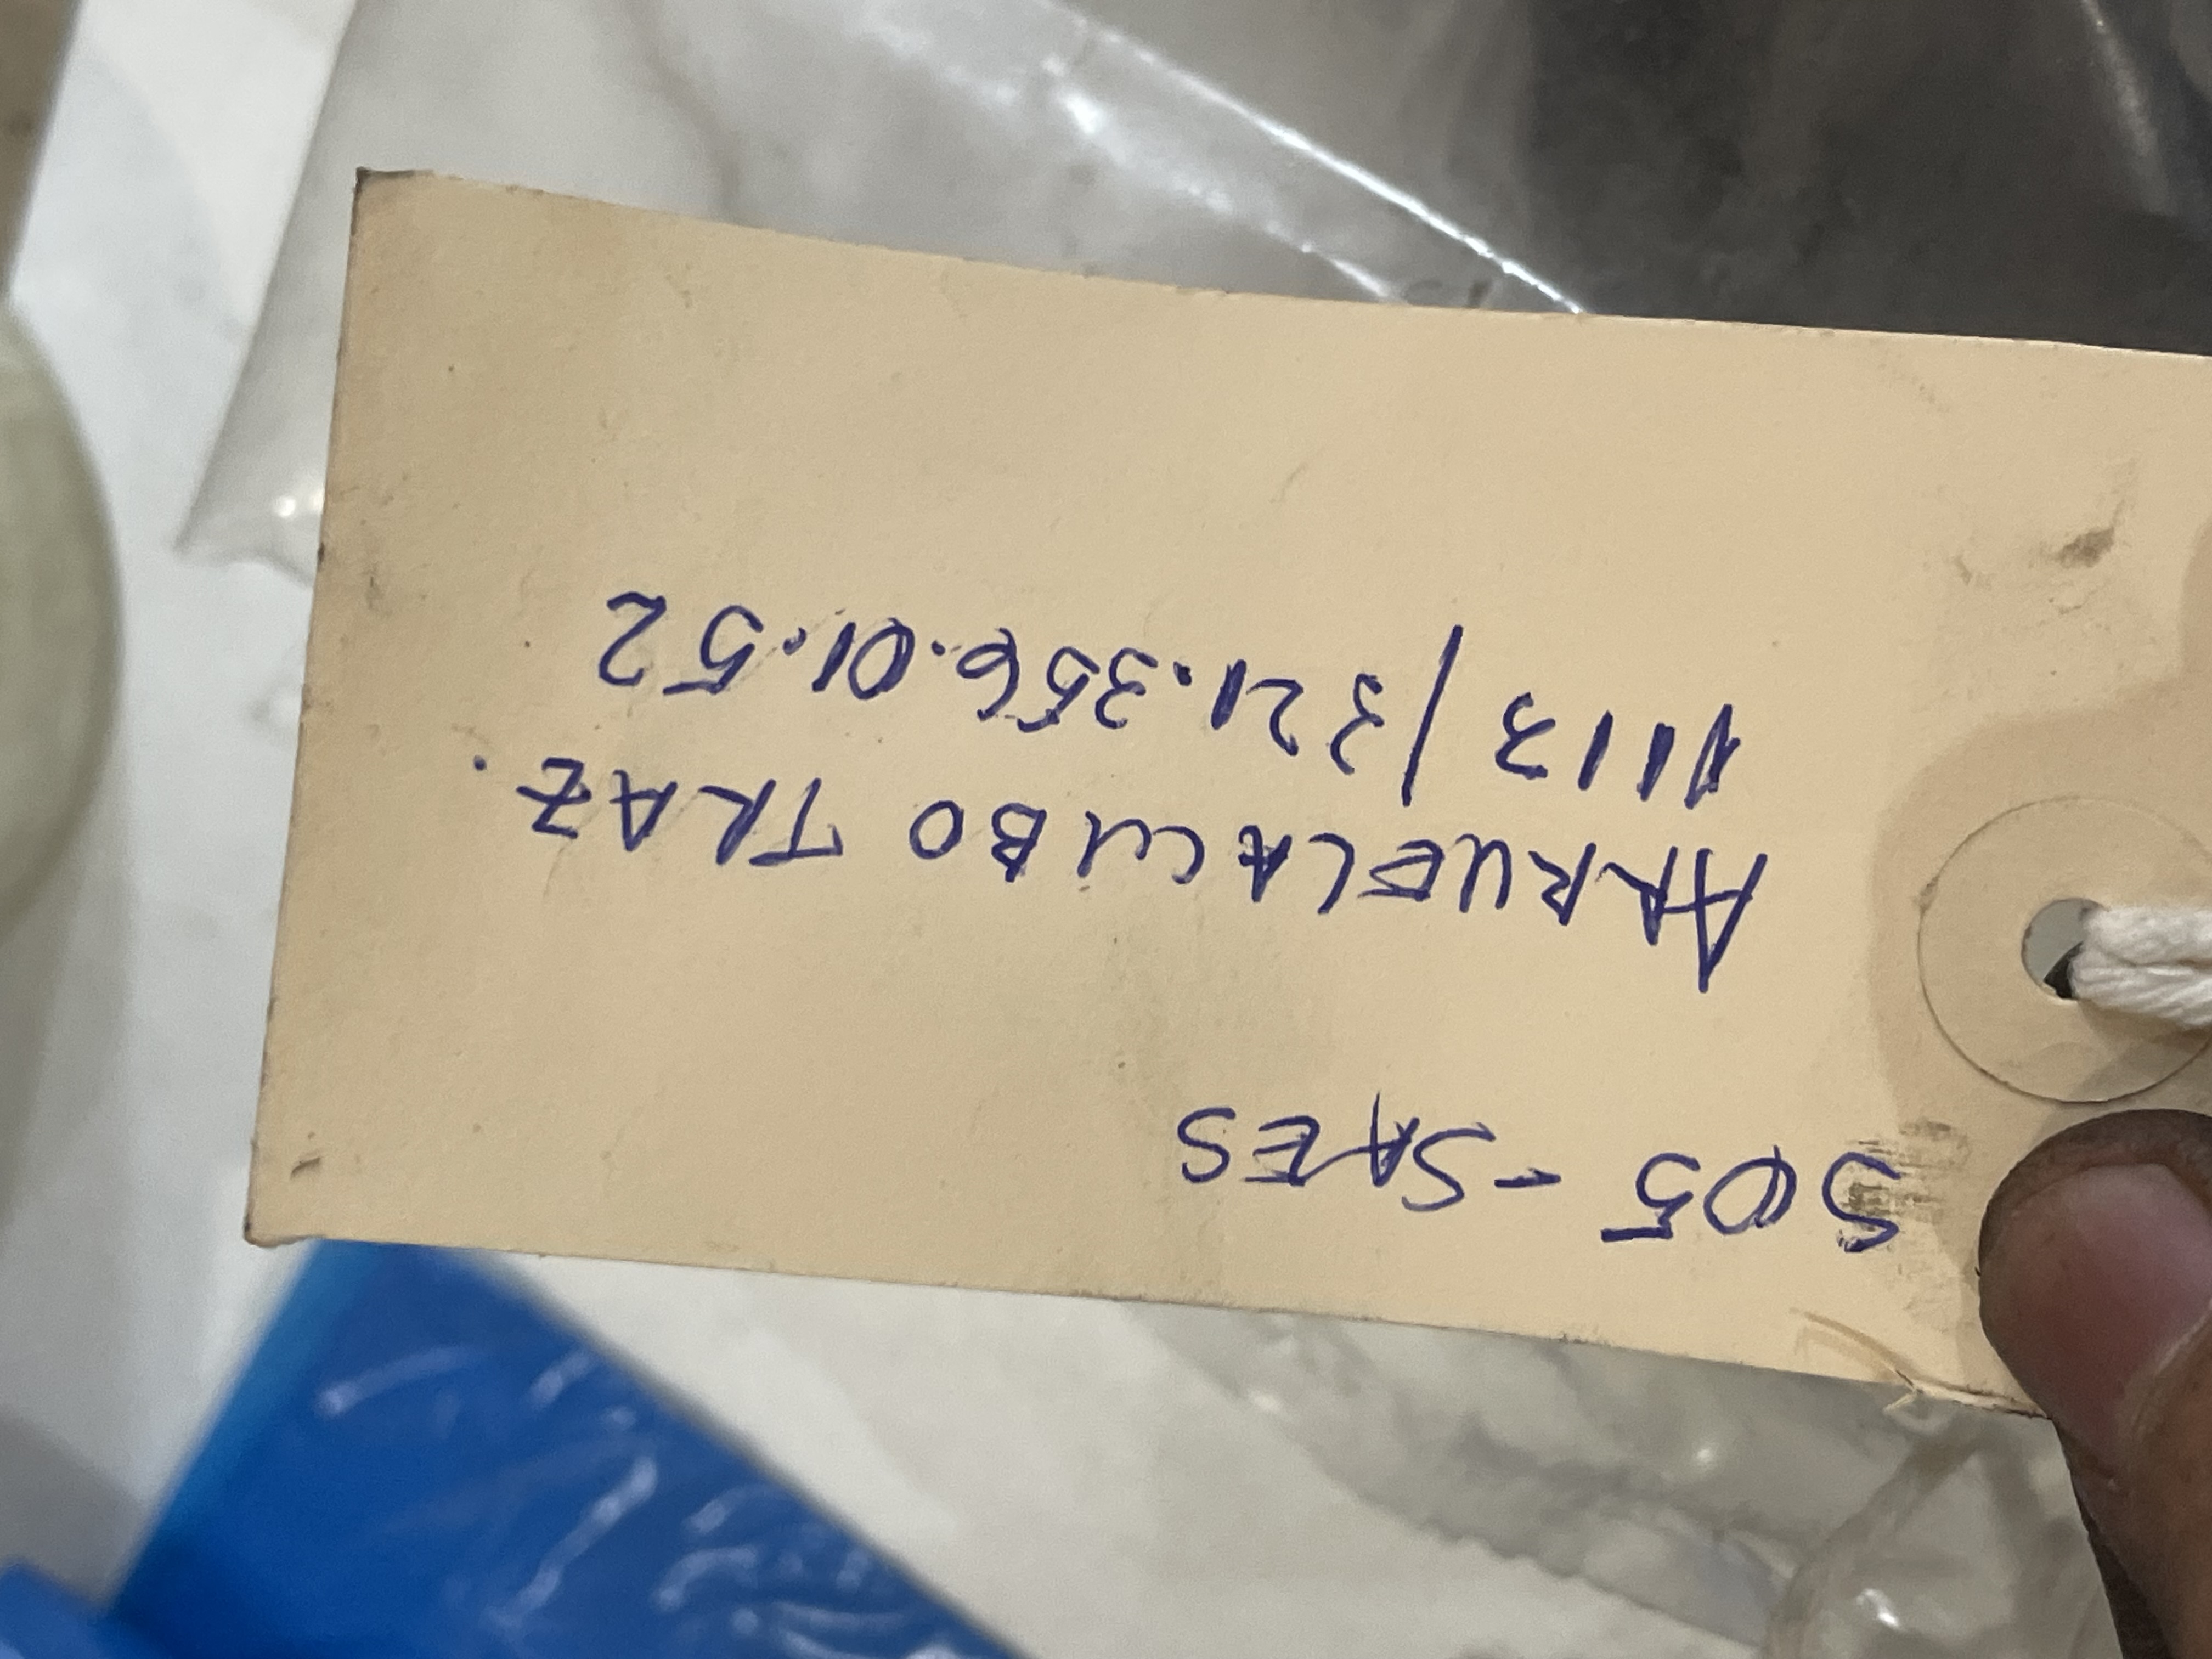 505 - SAES
ARRUELA CUBO TRAZ.
1113 / 321.356.01.52